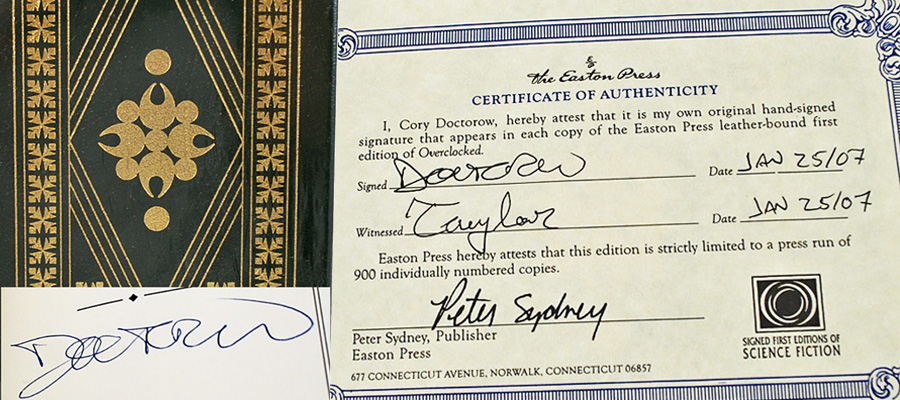 the Easton Press
CERTIFICATE OF AUTHENTICITY
I, Cory Doctorow, hereby attest that it is my own original hand-signed
signature that appears in each copy of the Easton Press leather-bound first
edition of Overclocked.
Signed Doctorow Date JAN 25/07
Witnessed Taylor Date JAN 25/07
Easton Press hereby attests that this edition is strictly limited to a press run of
900 individually numbered copies.
Peter Sydney
Peter Sydney, Publisher
Easton Press
677 CONNECTICUT AVENUE, NORWALK, CONNECTICUT 06857
SIGNED FIRST EDITIONS OF
SCIENCE FICTION
Doctorow